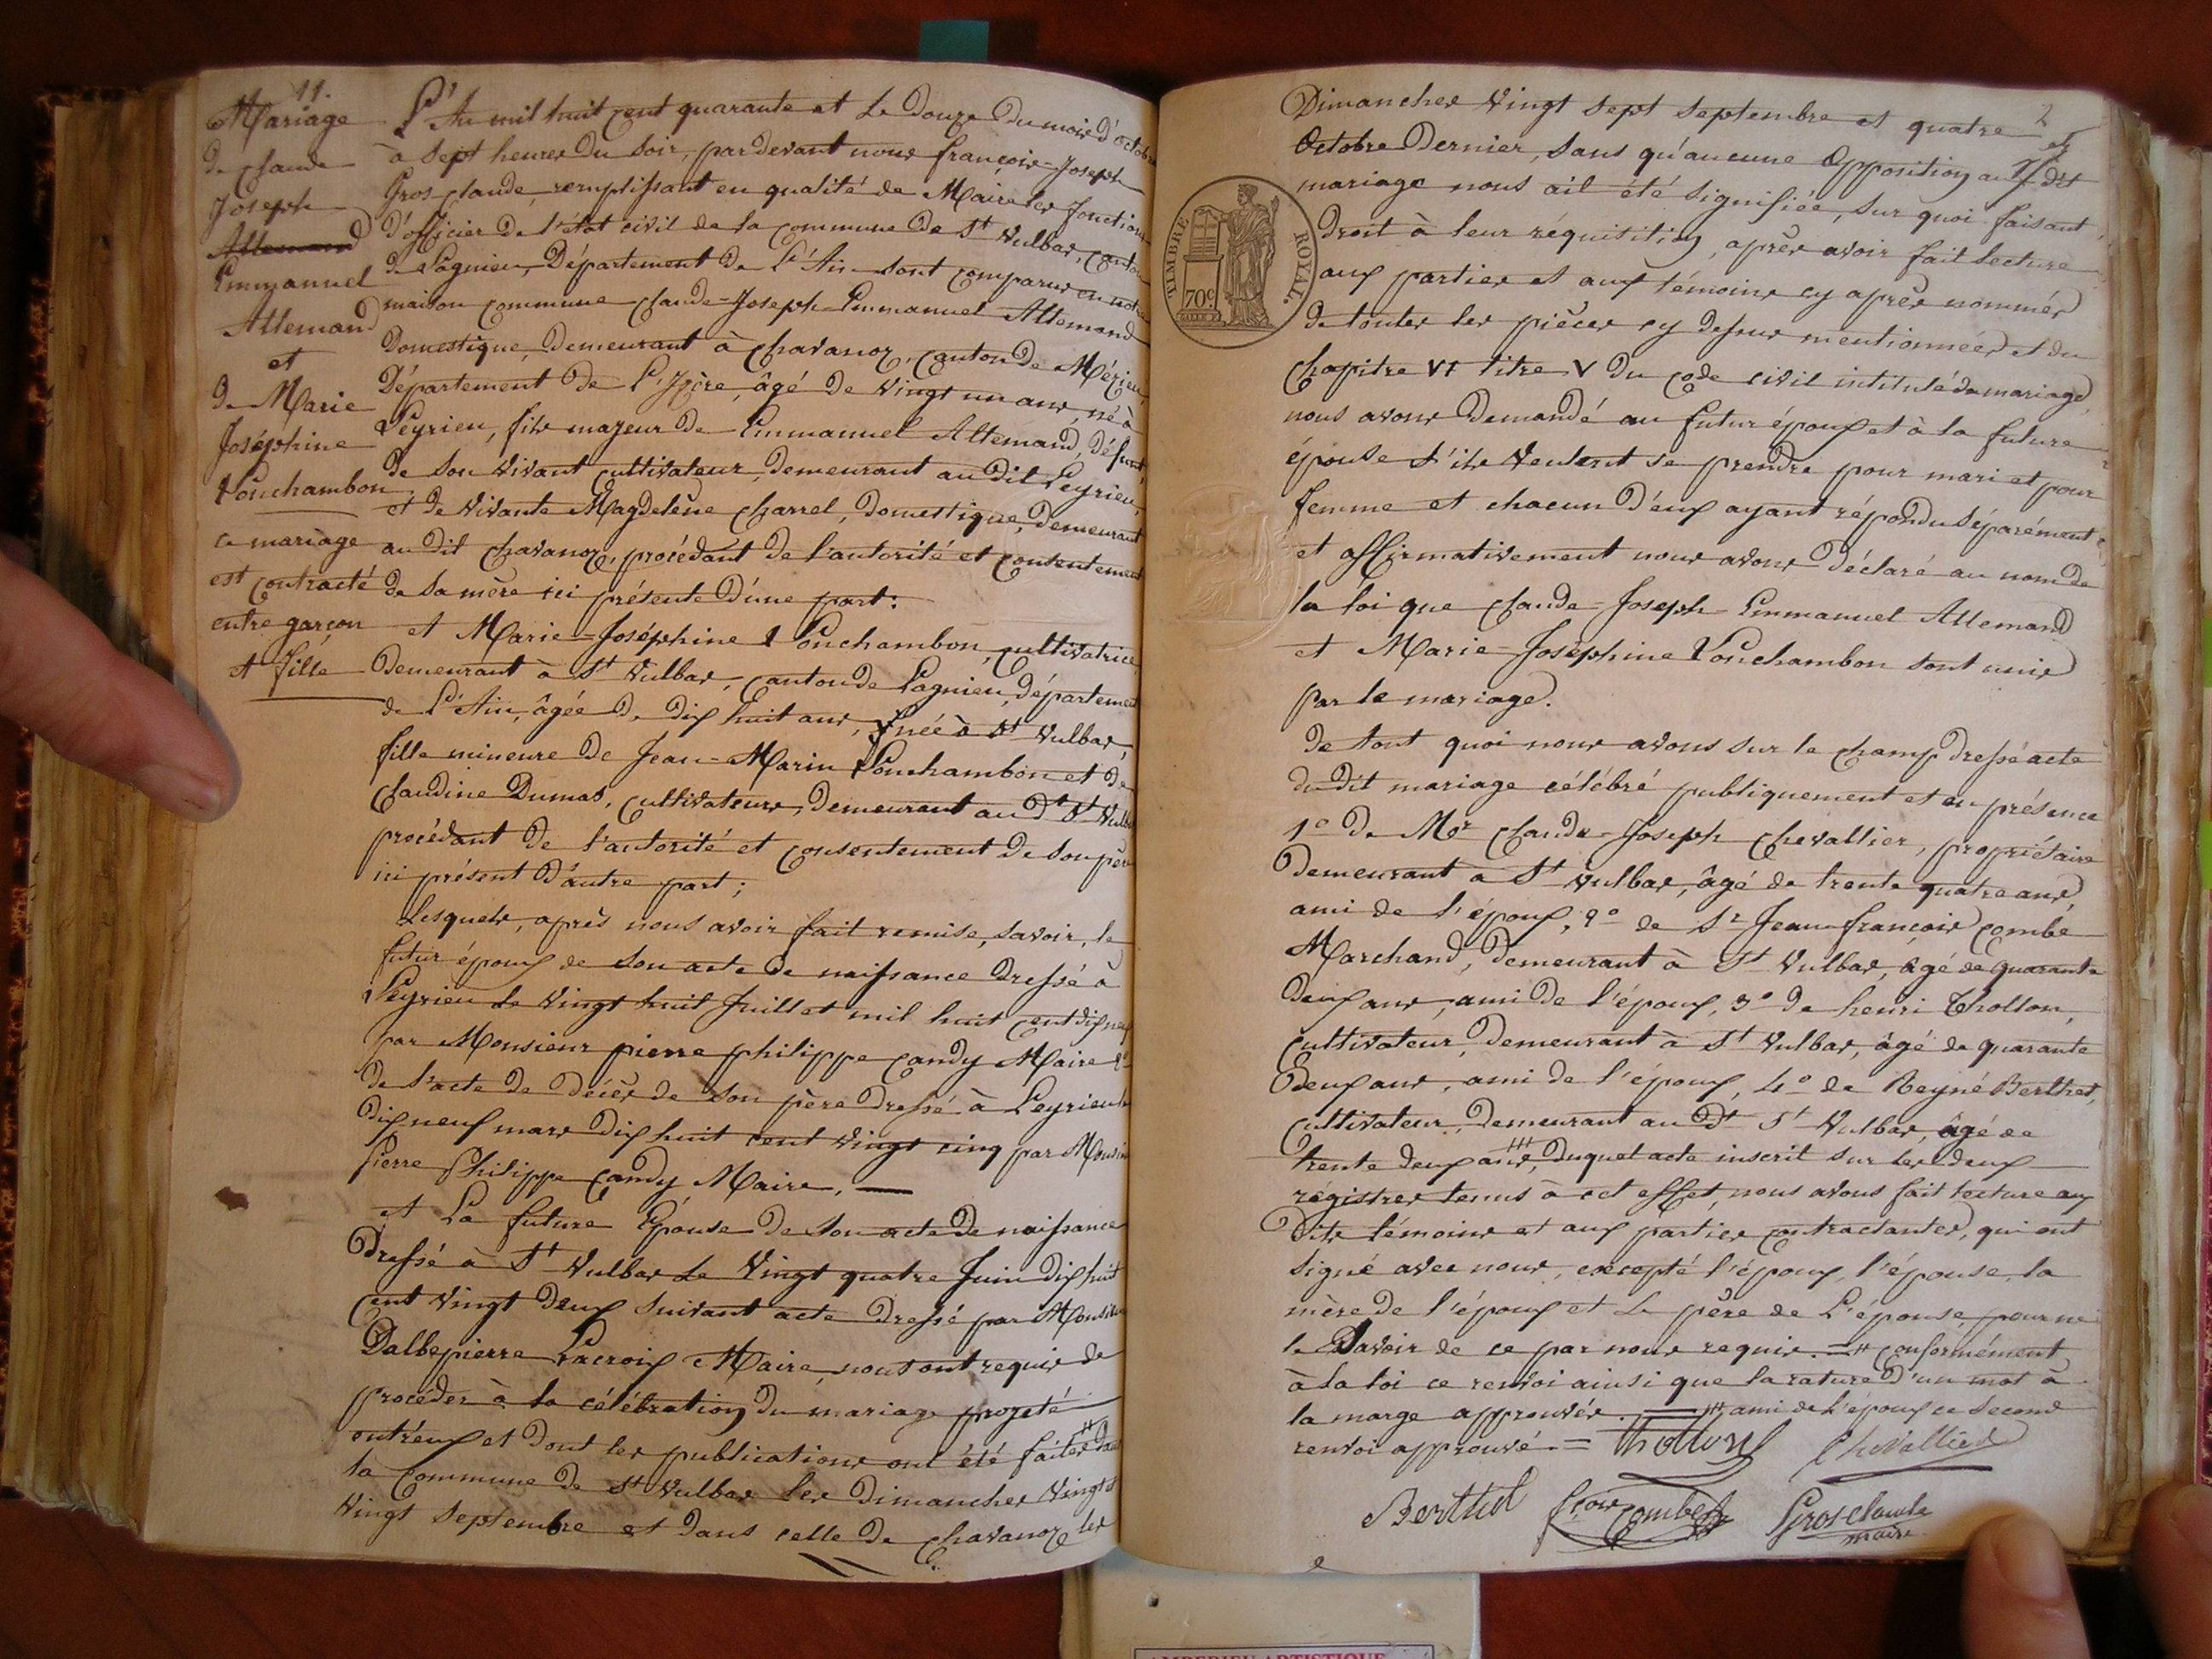 11.
Mariage
de claude
Joseph
Allemand
Emmanuel
Allemand
et
de Marie
Joséphine
Ponchambon
ce mariage
est contracté
entre garçon
et fille
L'An mil huit cent quarante et le Douze du mois d'octobre
à sept heures du soir, pardevant nous françois-Joseph
Gros claude, remplissant en qualité de Maire les fonctions
d'officier de l'état civil de la commune de St Vulbas, canton
de Lagnieu, Département de L'Ain sont comparus en notre
maison commune claude-Joseph-Emmanuel Allemand
Domestique, demeurant à chavanoz, canton de Mézieu,
Département de L'Izère, âgé de vingt un ans, né à
Leyrieu, fils majeur de Emmanuel Allemand, défunt,
de son vivant cultivateur, demeurant au dit Leyrieu,
et de vivante Magdeleine charrel, domestique, demeurant
au dit chavanoz, procédant de l'autorité et consentement
de sa mère ici présente d'une part:
et Marie-Joséphine Ponchambon, cultivatrice,
demeurant à St Vulbas, canton de Lagnieu, département
de L'Ain, âgée de dix huit ans, née à St Vulbas
fille mineure de Jean-Marin Ponchambon et de
claudine Dumas, cultivateurs, demeurant au dt St Vulbas
procédant de l'autorité et consentement de son père
ici présent d'autre part;
Lesquels, après nous avoir fait remise, savoir, le
futur époux de son acte de naissance dressé à
Leyrieu le vingt huit Juillet mil huit cent dix neuf
par Monsieur pierre philippe candy Maire 2°
de l'acte de décès de son père dressé à Leyrieu le
dix neuf mars dix huit cent vingt cinq par Monsieur
Pierre Philippe candy Maire.
et La future Epouse de son acte de naissance
Dressé à St Vulbas le Vingt quatre Juin dix huit
cent vingt deux suivant acte dressé par Monsieur
Dalbepierre Lacroix Maire, nous ont requis de
procéder à la célébration du mariage projeté
entr'eux et dont les publications ont été faites # dans
la commune de St Vulbas les dimanches vingt et
vingt septembre et dans celle de chavanoz les
2
Dimanches vingt sept septembre et quatre
Octobre Dernier, sans qu'aucune Opposition au dit
mariage nous ait été signifiée, sur quoi faisant
droit à leur réquisition, après avoir fait lecture
aux parties et aux témoins cy après nommés
de toutes les pièces cy dessus mentionnées et du
chapitre VI titre V du code civil intitulé du mariage,
nous avons demandé au futur époux et à la future
épouse s'ils veulent se prendre pour mari et pour
femme et chacun d'eux ayant répondu séparément
et affirmativement nous avons déclaré au nom de
la loi que claude-Joseph-Emmanuel Allemand
et Marie-Joséphine Ponchambon sont unis
par le mariage.
de tout quoi nous avons sur le champ dressé acte
du dit mariage célébré publiquement et en présence
1° de Mor claude-Joseph chevallier, propriétaire
Demeurant à St Vulbas, âgé de trente quatre ans,
ami de l'époux, 2° de Sr Jean-françois combe
Marchand, demeurant à St Vulbas, âgé de quarante
deux ans, ami de l'époux, 3° de henri Thollon,
cultivateur, demeurant à St Vulbas, âgé de quarante
deux ans, ami de l'époux, 4° de Reyné Berthet,
cultivateur, demeurant au dt St Vulbas, âgé de
trente deux ans, ### duquel acte inscrit sur les deux
régistres tenus à cet effet, nous avons fait lecture aux
Dits témoins et aux parties contractantes, qui ont
signé avec nous, excepté l'époux, l'épouse, la
mère de l'époux et le père de L'épouse, pour ne
le savoir de ce par nous requis. = # conformément
à la loi ce renvoi ainsi que la rature d'un mot à
la marge approuvés. = ### ami de L'époux ce second
renvoi approuvé. = Thollon Chevallier
Berthet fçois combe Grosclaude
maire
TIMBRE ROYAL.
70c.
AMBERIEU ARTISTIQUE